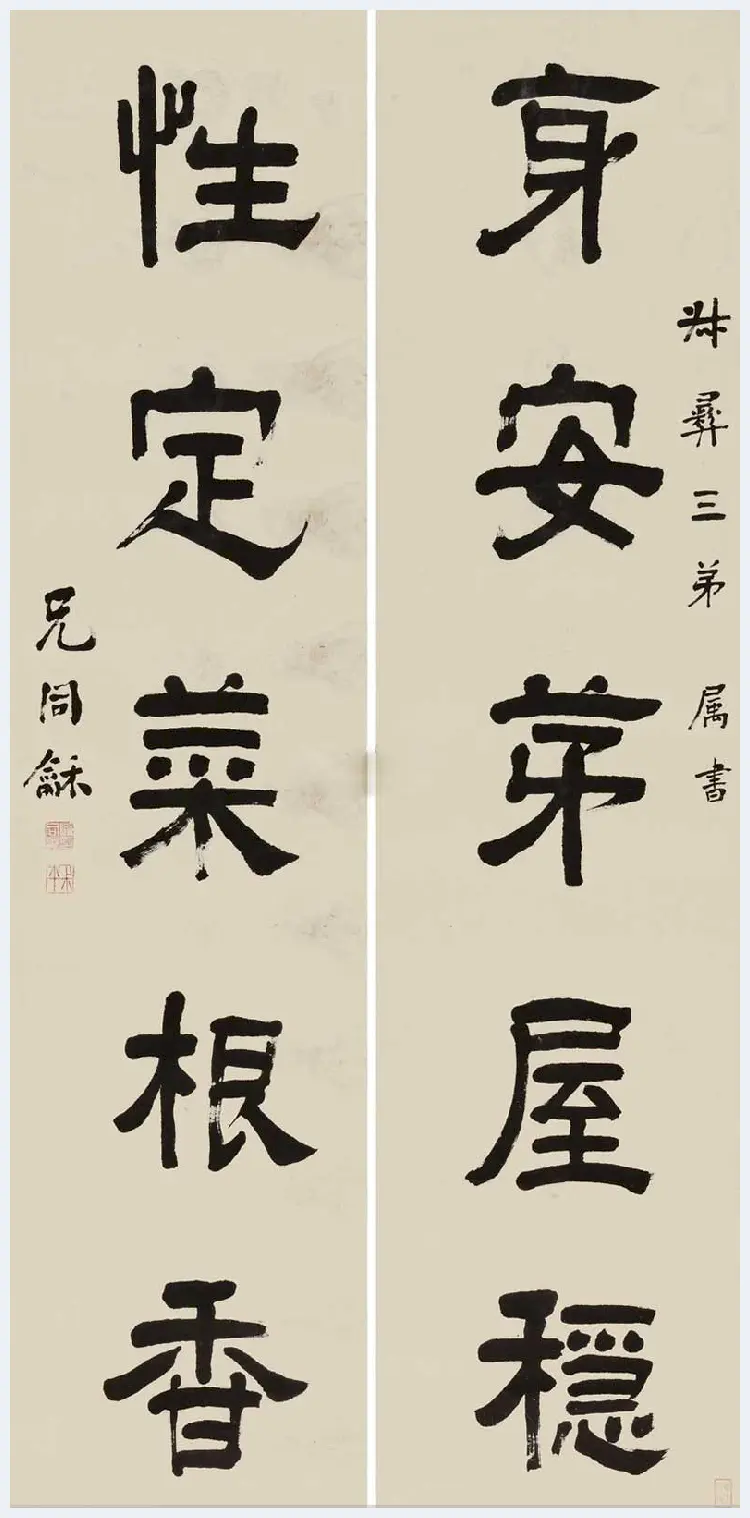 彝三弟 属書
身安茅屋穩
性定菜根香
兄同龢